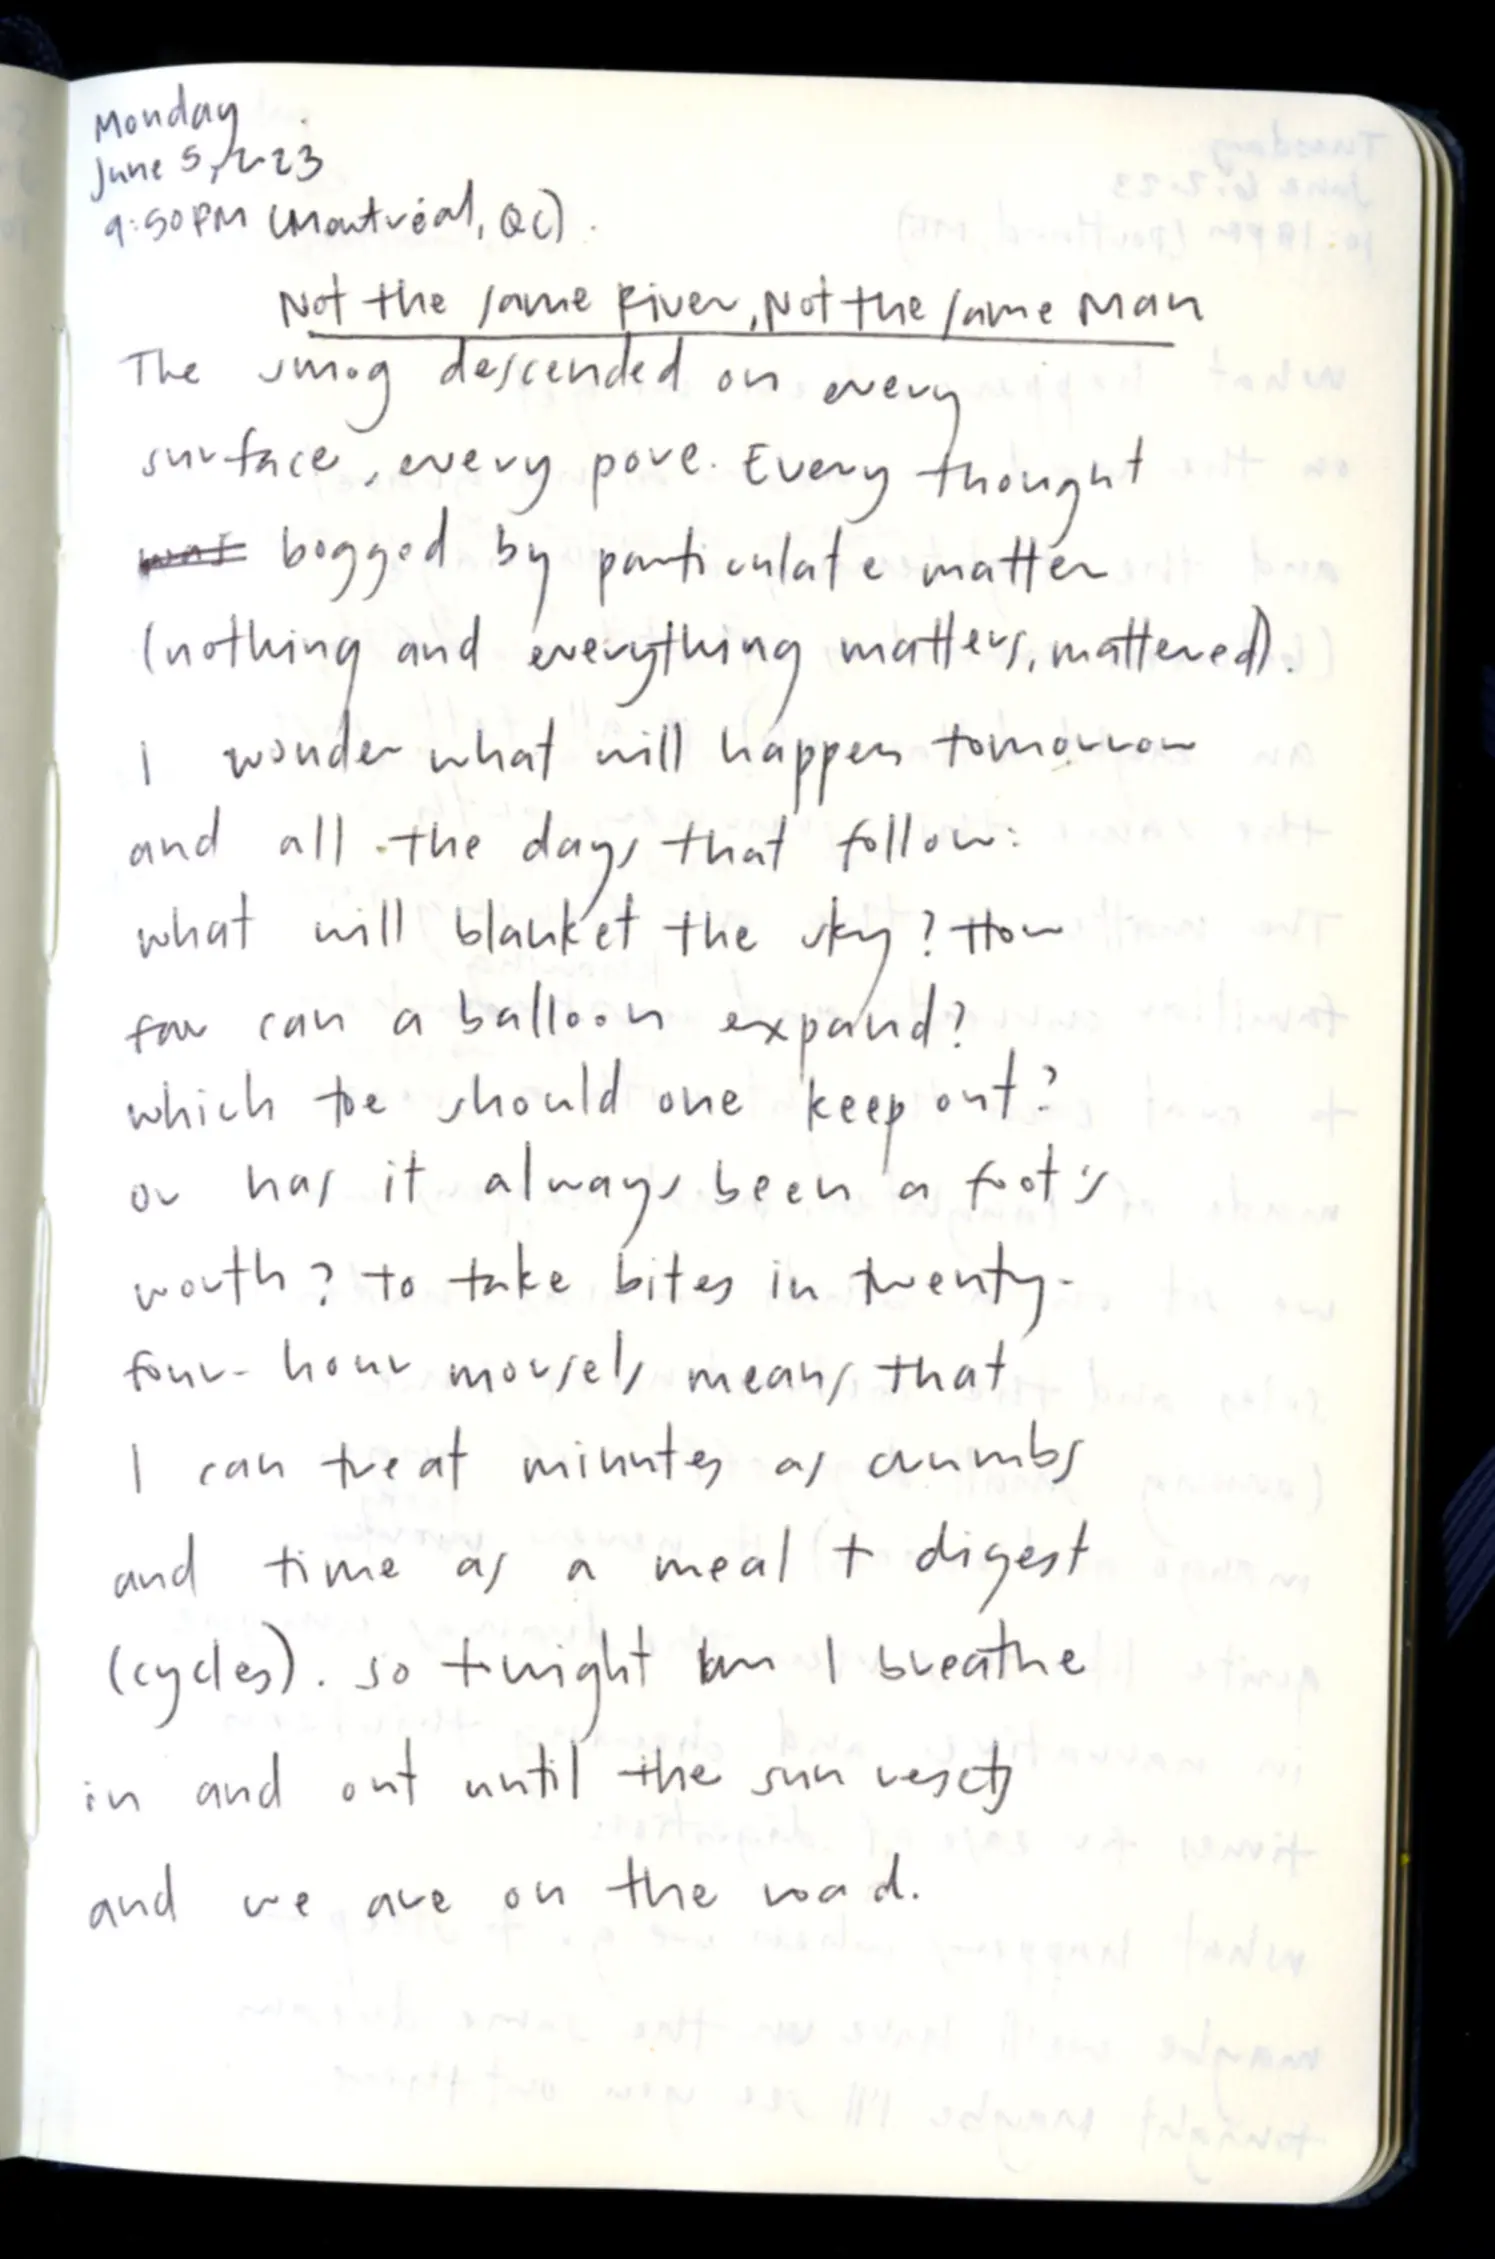 Monday
June 5, 2023
9:50PM (Montréal, QC).
Not the same River, Not the same Man
The smog descended on every
surface, every pore. Every thought
was bogged by particulate matter
(nothing and everything matters, mattered).
I wonder what will happen tomorrow
and all the days that follow:
what will blanket the sky? How
far can a balloon expand?
which toe should one keep out?
or has it always been a foot's
worth? to take bites in twenty-
four-hour morsels means that
I can treat minutes as crumbs
and time as a meal to digest
(cycles). so tonight I breathe
in and out until the sun resets
and we are on the road.